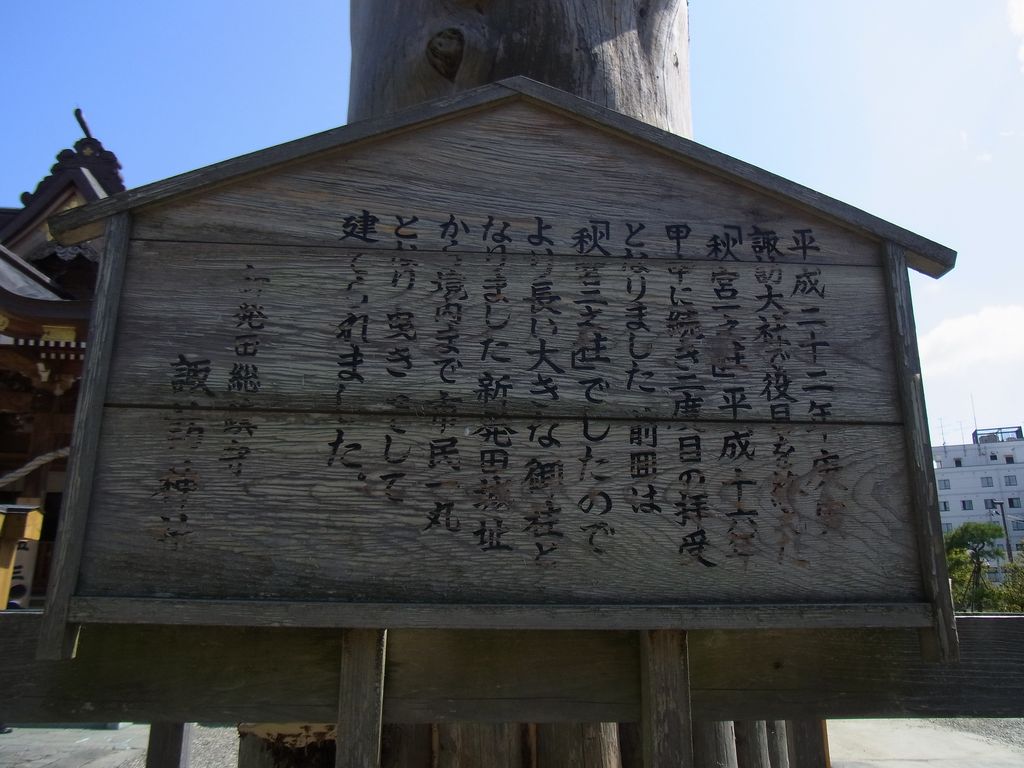 平成二十二年庚寅
諏訪大社で役目を
「秋宮一之柱」平成十六年
甲申に続き二度目の拝受
となりました。前回は
「秋宮三之柱」でしたので
より長い大きな御柱と
なりました。新発田城址
から境内まで市民一丸
となり曳きして
建てられました。
新発田総鎮守
諏訪神社